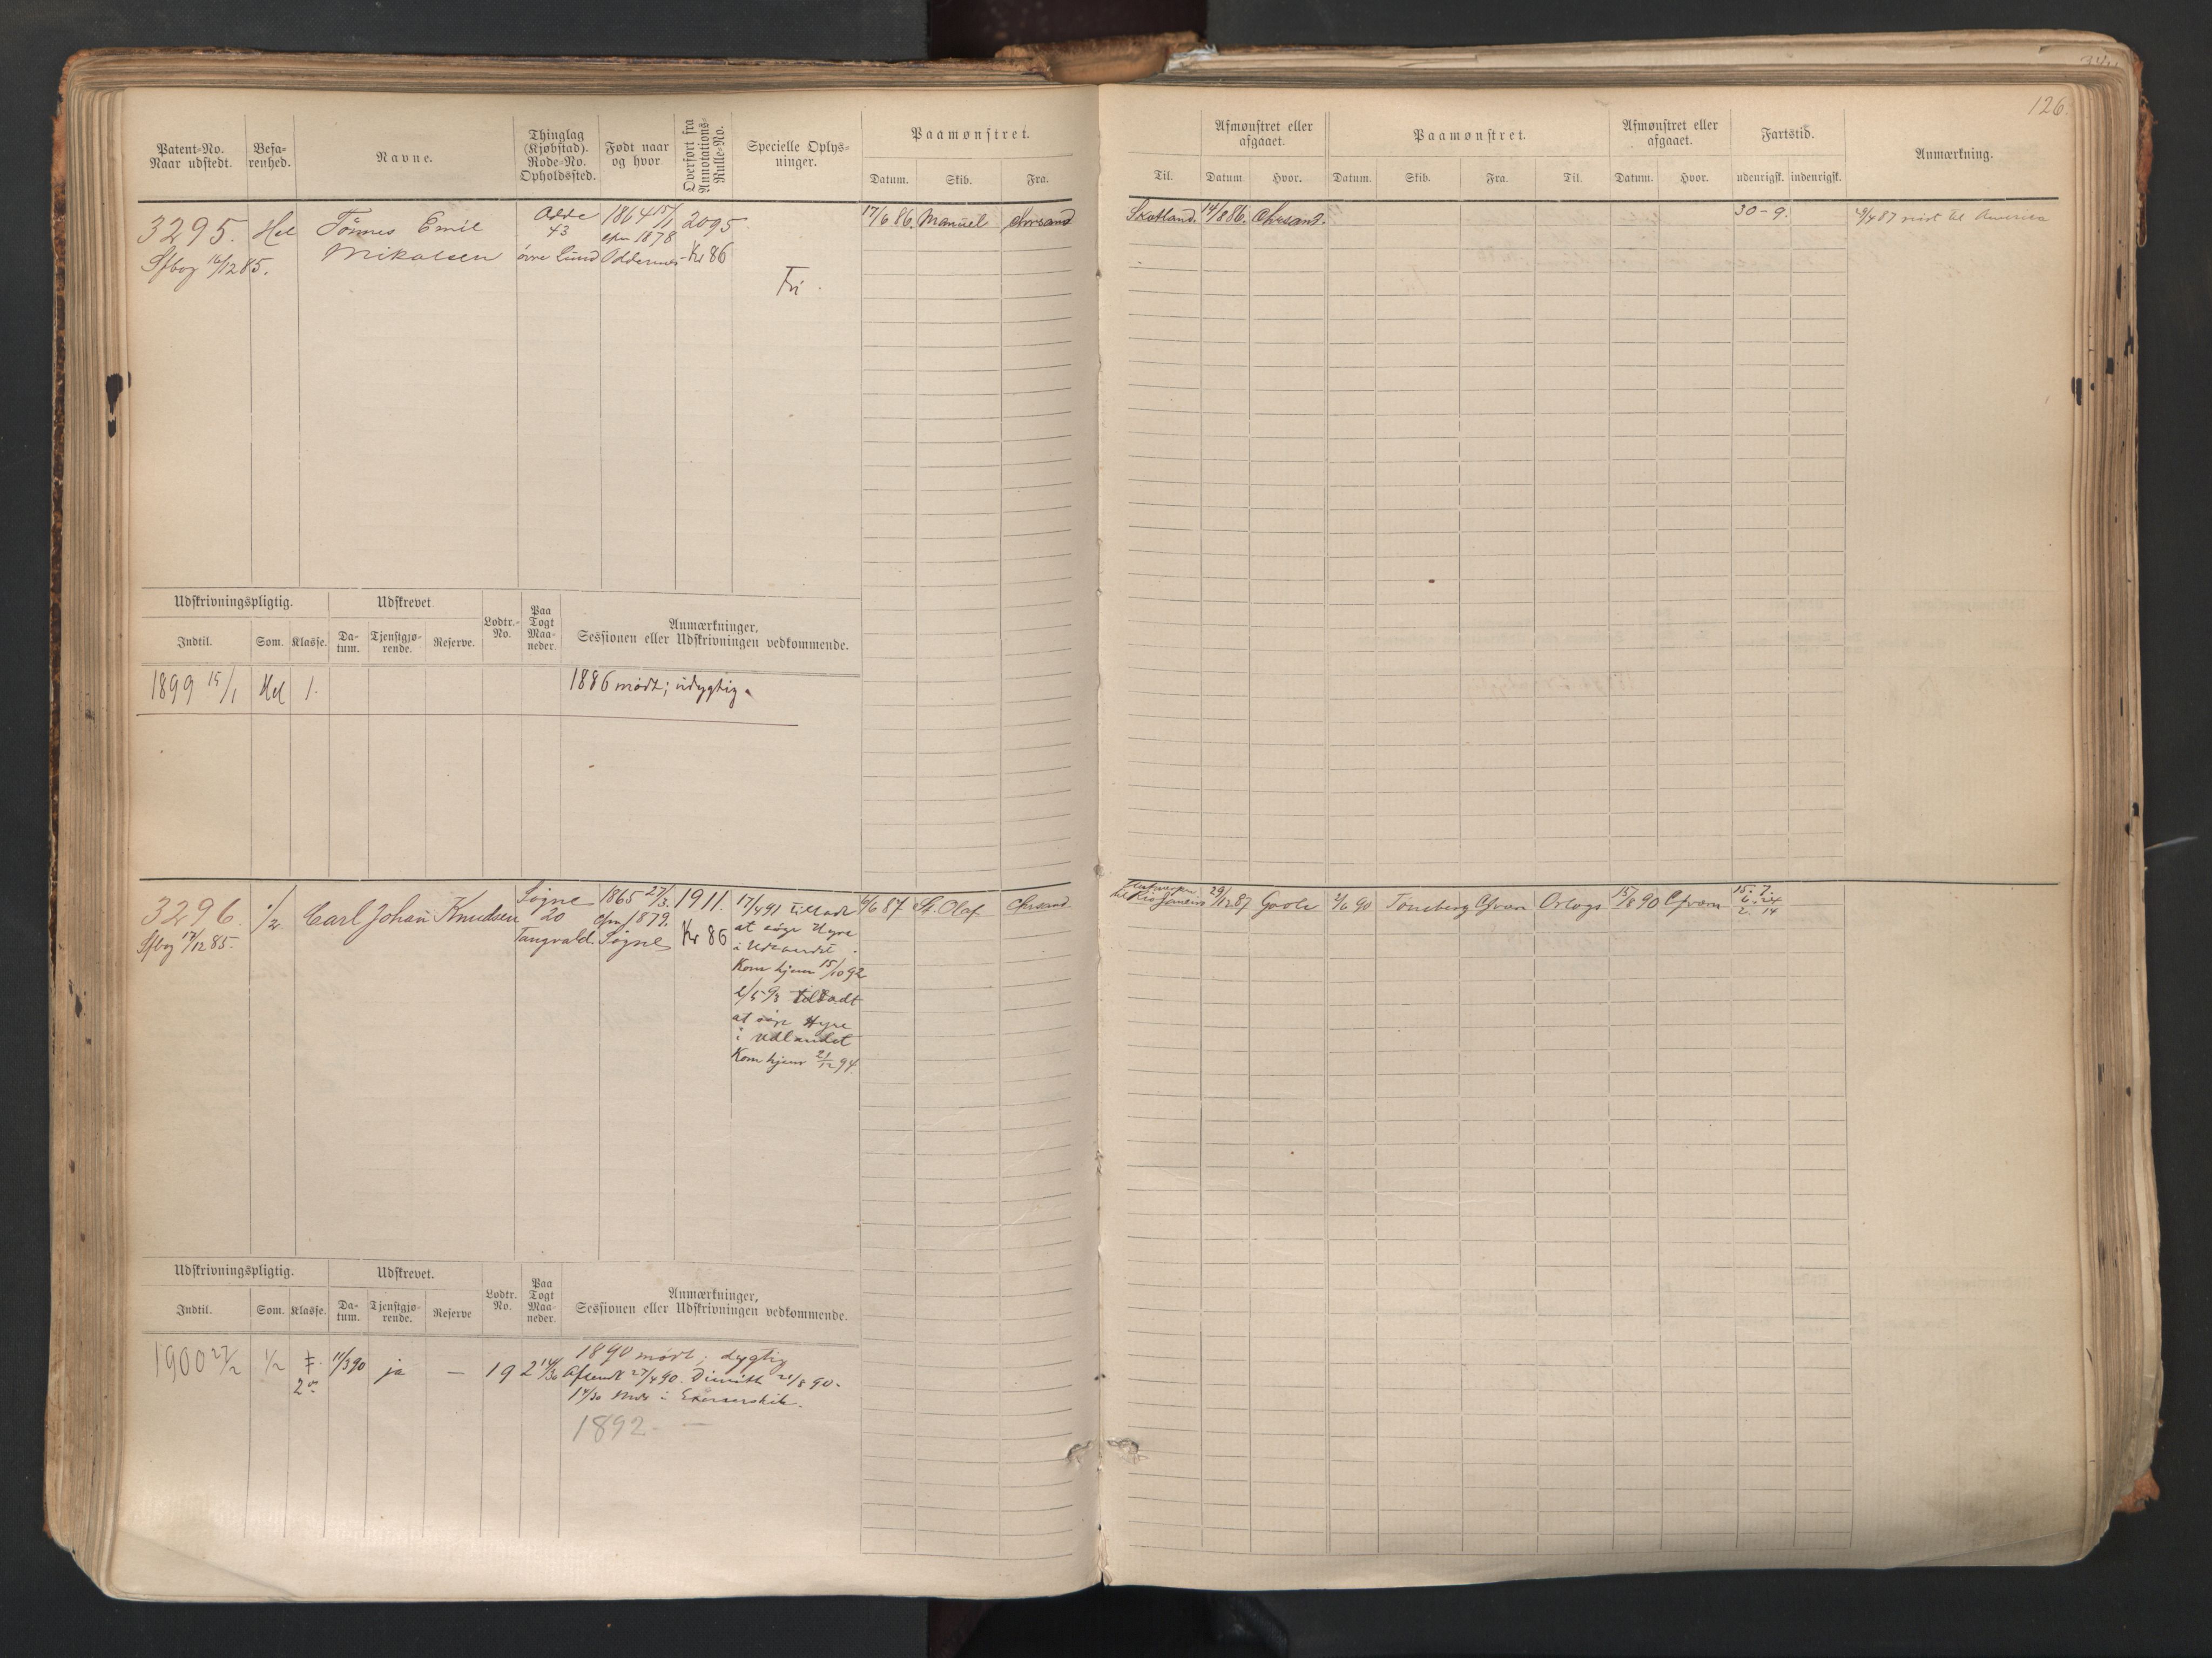 126.
Patent-No.
Naar udstedt.
Befa-
renhed.
Navne.
Thinglag
(Kjøbstad).
Rode-No.
Opholdssted.
Født naar
og hvor
Overført fra
Annotations-
Rulle-No.
Specielle Oplys-
ninger.
Paamønstret.
Datum.
Skib.
Fra.
Til.
Afmønstret eller
afgaaet.
Datum
Hvor.
Paamønstret.
Datum.
Skib.
Fra.
Til.
Afmønstret eller
afgaaet.
Datum.
Hvor.
Fartstid.
udenrigsk.
indenrigsk.
Anmærkning.
3295.
Sfbog 16/12 85.
Hel
Tönnes Emil
Mikalsen
Odde
43
övre Lund
1864 15/1
cfm 1878
Oddernes
2095
Kr 86
Fri
17/6 86.
Manuel
Chrsand
Skotland.
14/8 86.
Chrsand.
30-9.
87 reist til Amerika
Udskrivningspligtig.
Indtil.
Som.
Klasse.
Udskrevet
Da-
tum.
Tjenstgjø-
rende.
Reserve.
Lodtr.-
No.
Paa
Togt
Maa-
neder.
Anmærkninger,
Sessionen eller Udskrivningen vedkommende.
1899 15/1
Hel
1.
1886 mödt; udygtig.
3296.
Sfbog 17/12 85.
1/2
Carl Johan Knudsen
Søgne
20
Tangvald.
1865 27/2.
cfm 1879.
Søgne
1911.
Kr 86
17/4 91 tilladt
at søge Hyre
i Udlandet.
Kom hjem 15/10 92
2/5 93 tilladt
at søge Hyre
i Udlandet
Kom hjem 21/12 94.
6/6 87
St. Olaf
Chrsand.
til Rio Janeiro
29/12 87
Goole
2/6 90
Tönsberg
Cfværn
Orlogs
15/8 90
Cfværn
15. 7.
6. 24
2. 14
Udskrivningspligtig.
Indtil.
Som.
Klasse.
Udskrevet.
Da-
tum.
Tjenstgjø-
rende.
Reserve
Lodtr.
No.
Paa
Togt
Maa-
neder.
Anmærkninger,
Sessionen eller Udskrivningen vedkommende.
1900 27/2
1/2
2
11/3 90
ja
—
19
2 14/30
1890 mödt; dygtig
Afsendt 27/4 90. Dimitt 21/8 90.
1 4/30 Mdr i Exerserskib.
1892 —